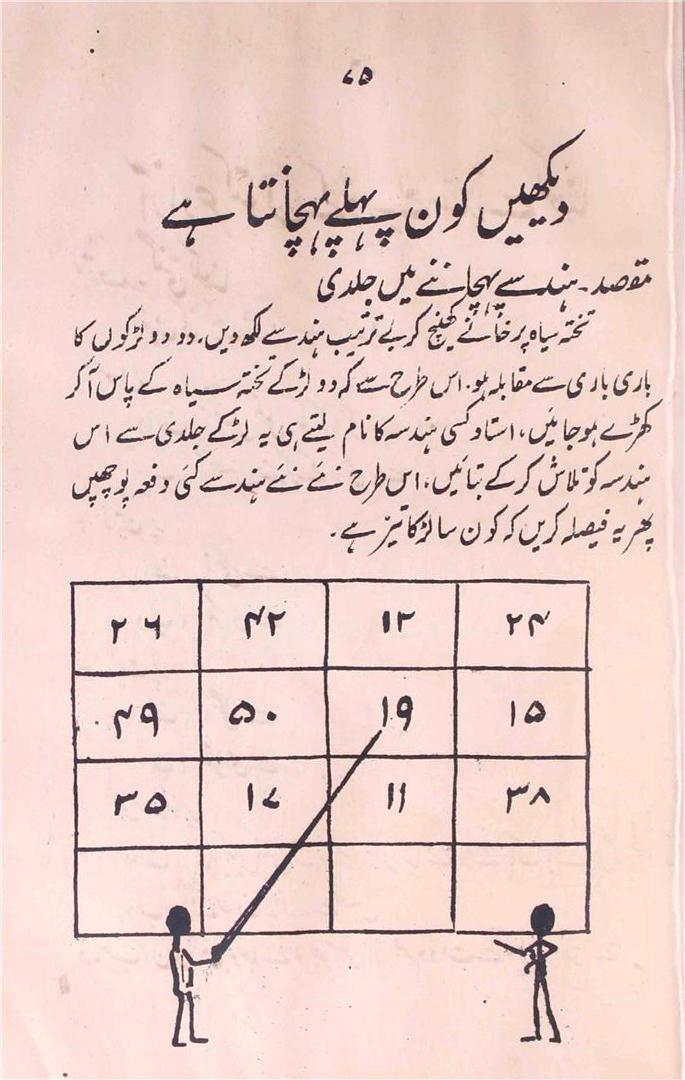 ۷۵
دیکھیں کون پہلے پہچانتا ہے
مقصد۔ ہندسے پہچاننے میں جلدی
تختہ سیاہ پر خانے کھینچ کر بے ترتیب ہندسے لکھ دیں، دو دو لڑکوں کا
باری باری سے مقابلہ ہو۔ اس طرح سے کہ دو لڑکے تختہ سیاہ کے پاس آ کر
کھڑے ہو جائیں، استاد کسی ہندسہ کا نام لیتے ہی یہ لڑکے جلدی سے اس
ہندسہ کو تلاش کر کے بتائیں، اس طرح نئے نئے ہندسے کئی دفعہ پوچھیں
پھر یہ فیصلہ کریں کہ کون سا لڑکا تیز ہے۔
۲۶ ۴۲ ۱۲ ۲۴
۴۹ ۵۰ ۱۹ ۱۵
۳۵ ۱۷ ۱۱ ۳۸